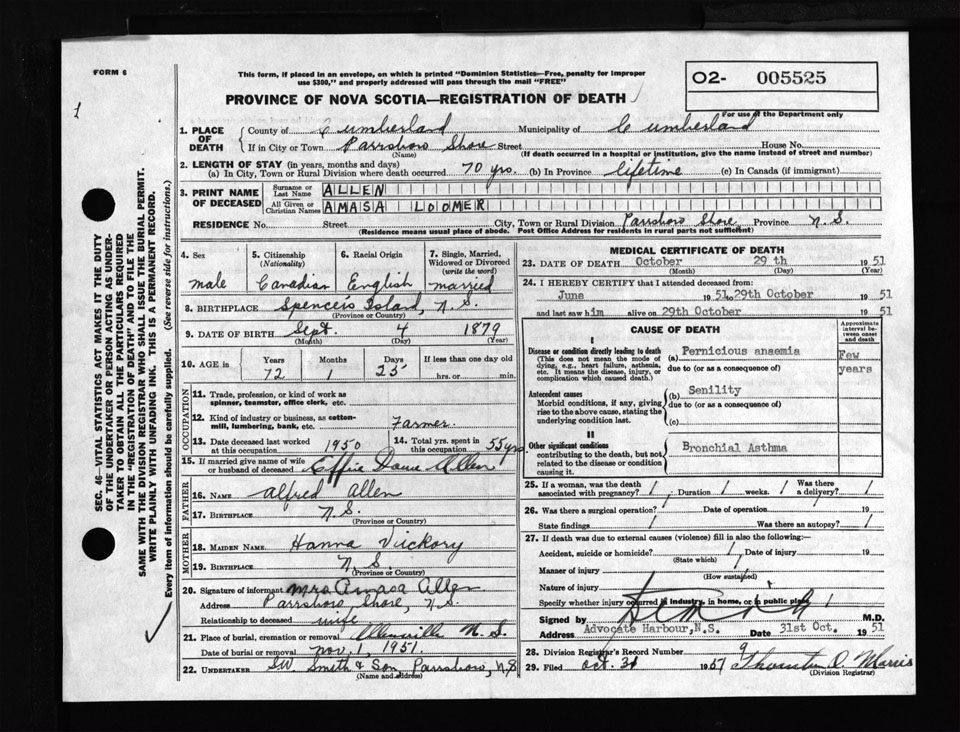 FORM 6
This form, if placed in an envelope, on which is printed "Dominion Statistics—Free, penalty for improper
use $300," and properly addressed will pass through the mail "FREE"
O2- 005525
PROVINCE OF NOVA SCOTIA—REGISTRATION OF DEATH
For use of the Department only
1
1. PLACE OF DEATH
County of Cumberland Municipality of Cumberland
If in City or Town Parrsboro Shore Street House No.
(Name) (If death occurred in a hospital or institution, give the name instead of street and number)
2. LENGTH OF STAY (in years, months and days)
(a) In City, Town or Rural Division where death occurred 70 yrs. (b) In Province lifetime (c) In Canada (if immigrant)
3. PRINT NAME OF DECEASED
Surname or Last Name ALLEN
All Given or Christian Names AMASA LOOMER
RESIDENCE No. Street City, Town or Rural Division Parrsboro Shore Province N.S.
(Residence means usual place of abode. Post Office Address for residents in rural parts not sufficient)
SEC. 46—VITAL STATISTICS ACT MAKES IT THE DUTY
OF THE UNDERTAKER OR PERSON ACTING AS UNDER-
TAKER TO OBTAIN ALL THE PARTICULARS REQUIRED
IN THE "REGISTRATION OF DEATH" AND TO FILE THE
SAME WITH THE DIVISION REGISTRAR WHO SHALL ISSUE THE BURIAL PERMIT.
WRITE PLAINLY WITH UNFADING INK. THIS IS A PERMANENT RECORD.
Every item of information should be carefully supplied. (See reverse side for instructions.)
4. Sex 5. Citizenship (Nationality) 6. Racial Origin 7. Single, Married, Widowed or Divorced (write the word)
male Canadian English married
8. BIRTHPLACE Spencers Island, N.S.
(Province or Country)
9. DATE OF BIRTH Sept. 4 1879
(Month) (Day) (Year)
10. AGE in Years Months Days If less than one day old
72 1 25 hrs. or min.
OCCUPATION
11. Trade, profession, or kind of work as
spinner, teamster, office clerk, etc.
12. Kind of industry or business, as cotton-
mill, lumbering, bank, etc. Farmer
13. Date deceased last worked at this occupation 1950 14. Total yrs. spent in this occupation 55 yrs
15. If married give name of wife
or husband of deceased Effie Allen
FATHER
16. NAME Alfred Allen
17. BIRTHPLACE N.S.
(Province or Country)
MOTHER
18. MAIDEN NAME Hanna Vickory
19. BIRTHPLACE N.S.
(Province or Country)
20. Signature of informant Mrs Amasa Allen
Address Parrsboro Shore, N.S.
Relationship to deceased wife
21. Place of burial, cremation or removal Allenville N.S.
Date of burial or removal nov. 1, 1951.
22. UNDERTAKER Smith & Son Parrsboro, N.S
(Name and address)
MEDICAL CERTIFICATE OF DEATH
23. DATE OF DEATH October 29 th 1951
(Month) (Day) (Year)
24. I HEREBY CERTIFY that I attended deceased from:
June 1951, 29th October 1951
and last saw him alive on 29th October 1951
CAUSE OF DEATH
Approximate interval between onset and death
I
Disease or condition directly leading to death
(This does not mean the mode of
dying, e.g., heart failure, asthenia,
etc. It means the disease, injury, or
complication which caused death.)
(a) Pernicious anaemia Few years
due to (or as a consequence of)
Antecedent causes
Morbid conditions, if any, giving
rise to the above cause, stating the
underlying condition last.
(b) Senility
due to (or as a consequence of)
(c)
II
Other significant conditions
contributing to the death, but not
related to the disease or condition
causing it.
Bronchial Asthma
25. If a woman, was the death
associated with pregnancy? / ; Duration / weeks. / Was there a delivery? /
26. Was there a surgical operation? / Date of operation 19
State findings / Was there an autopsy? /
27. If death was due to external causes (violence) fill in also the following:—
Accident, suicide or homicide? / Date of injury 19
(State which)
Manner of injury
(How sustained)
Nature of injury
Specify whether injury occurred in industry, in home, or in public place /
Signed by M.D.
Address Advocate Harbour, N.S. Date 31st Oct. 1951
28. Division Registrar's Record Number 9
29. Filed Oct. 31 1951 Morris
(Division Registrar)